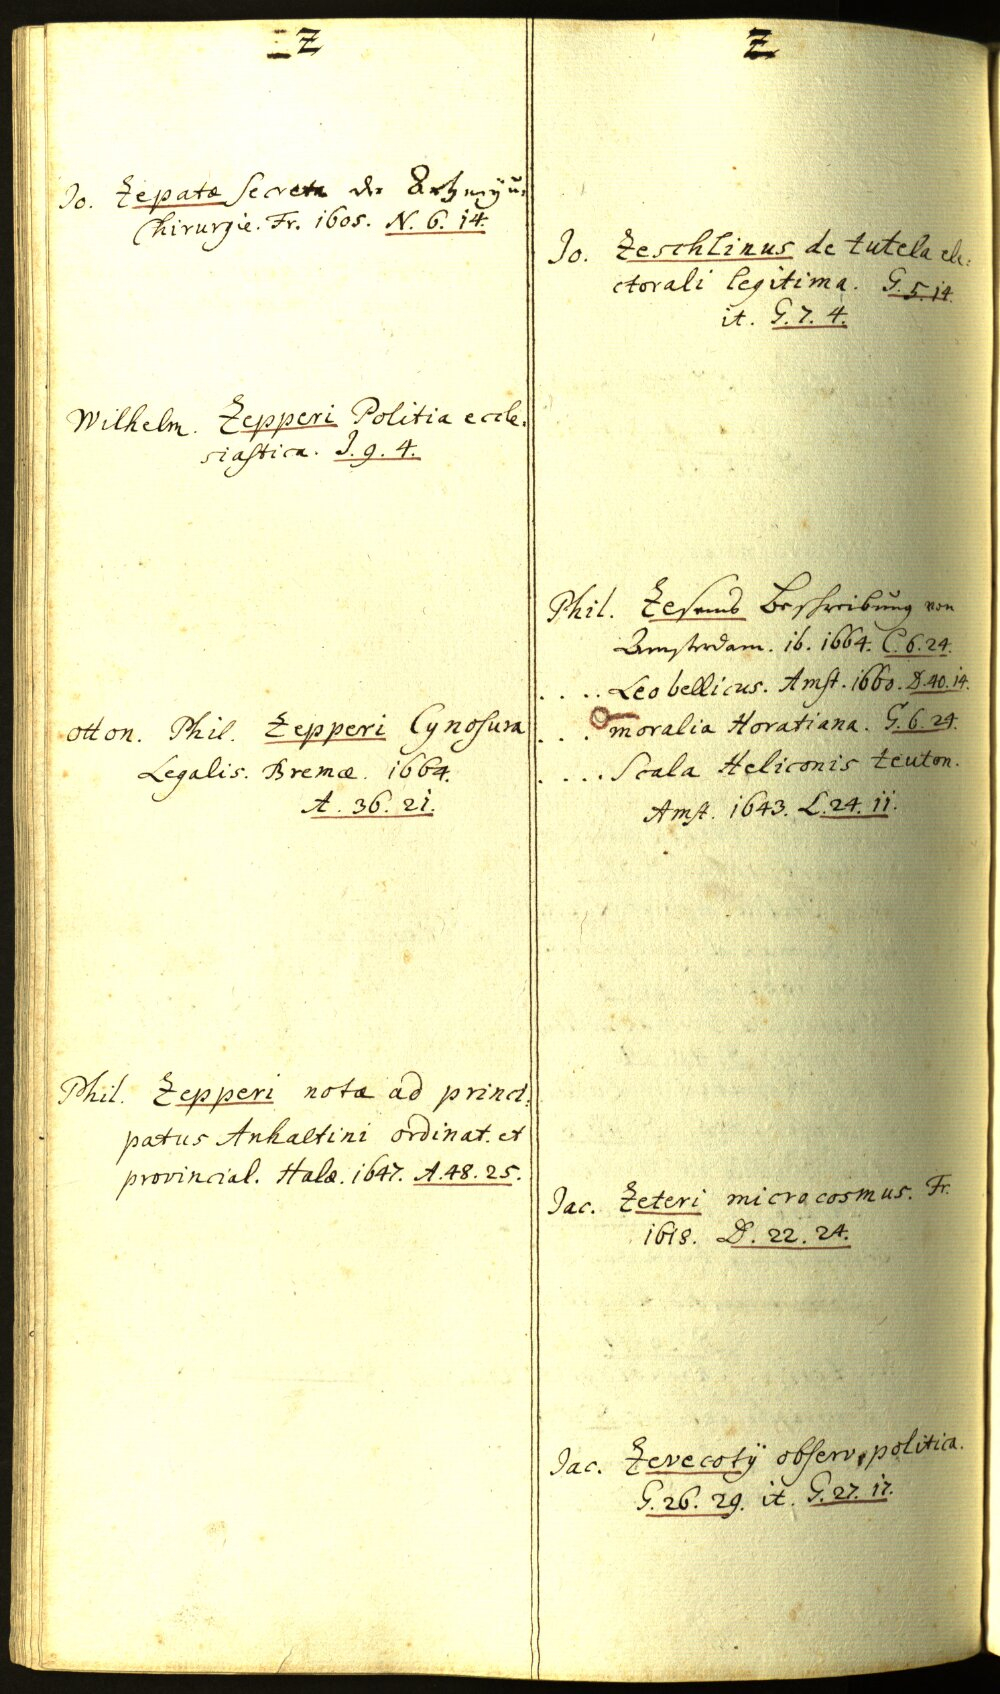 Z
Jo. Zepatæ Secreta der Artzneÿ u.
Chirurgie. Fr. 1605. N. 6. 14.
Wilhelm. Zepperi Politia eccle-
siastica. J. 9. 4.
Otton. Phil. Zepperi Cynosura
Legalis. Bremæ. 1664.
A. 36. 21.
Phil. Zepperi nota ad princi-
patus Anhaltini ordinat. et
provincial. Halæ. 1647. A. 48. 25.
Z
Jo. Zeschlinus de tutela ele-
ctorali legitima. G. 5. 14.
it. G. 7. 4.
Phil. Zesens Beschreibung von
Amsterdam. ib. 1664. C. 6. 24.
. . . . Leo bellicus. Amst. 1660. D. 40. 14.
. . . moralia Horatiana. G. 6. 24.
. . . . Scala Heliconis teuton.
Amst. 1643. L. 24. 11.
Jac. Zeteri micracosmus. Fr.
1618. D. 22. 24.
Jac. Zevecotÿ observ. politica.
G. 26. 29. it. G. 27. 17.